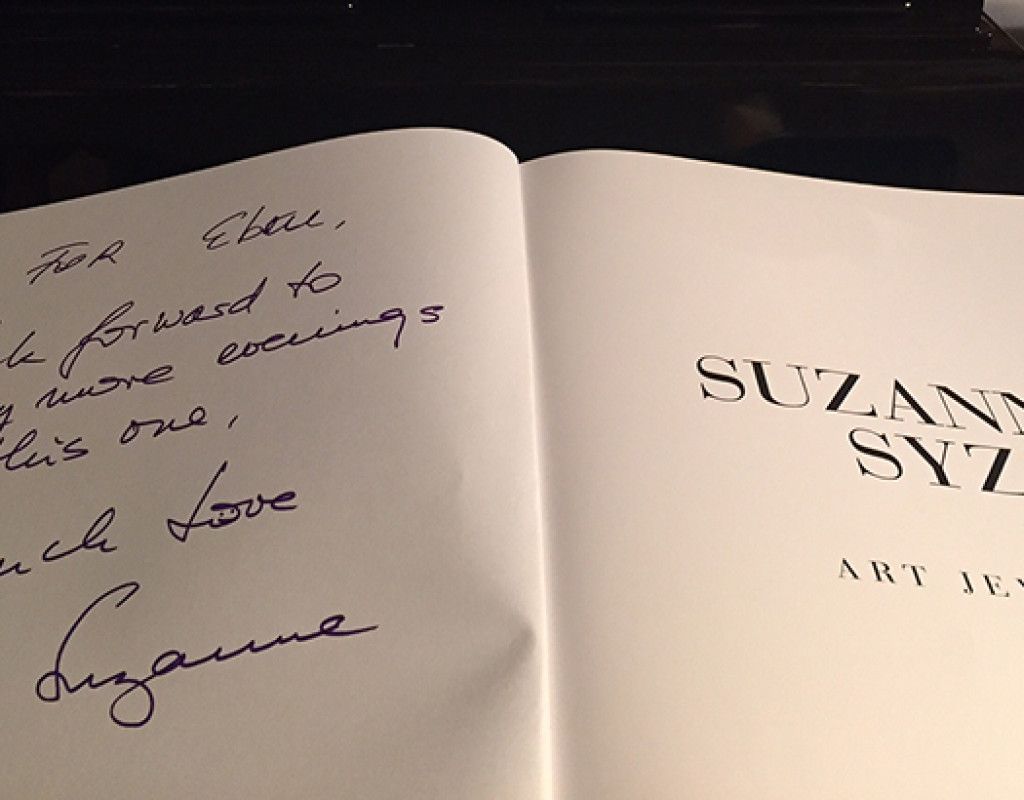 FOR Eben,
k forward to
y more evenings
this one,
uch Love
Suzanne
SUZANN
SYZ
ART JEW